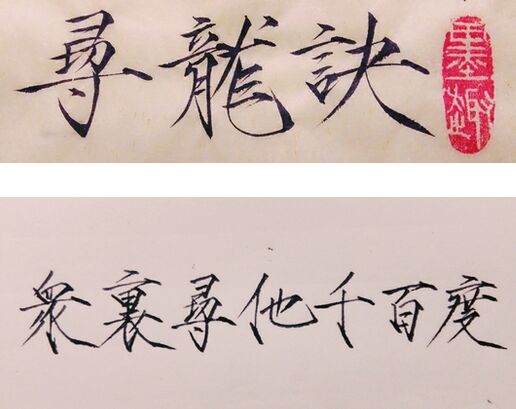 尋龍訣
墨趣
衆裏尋他千百度